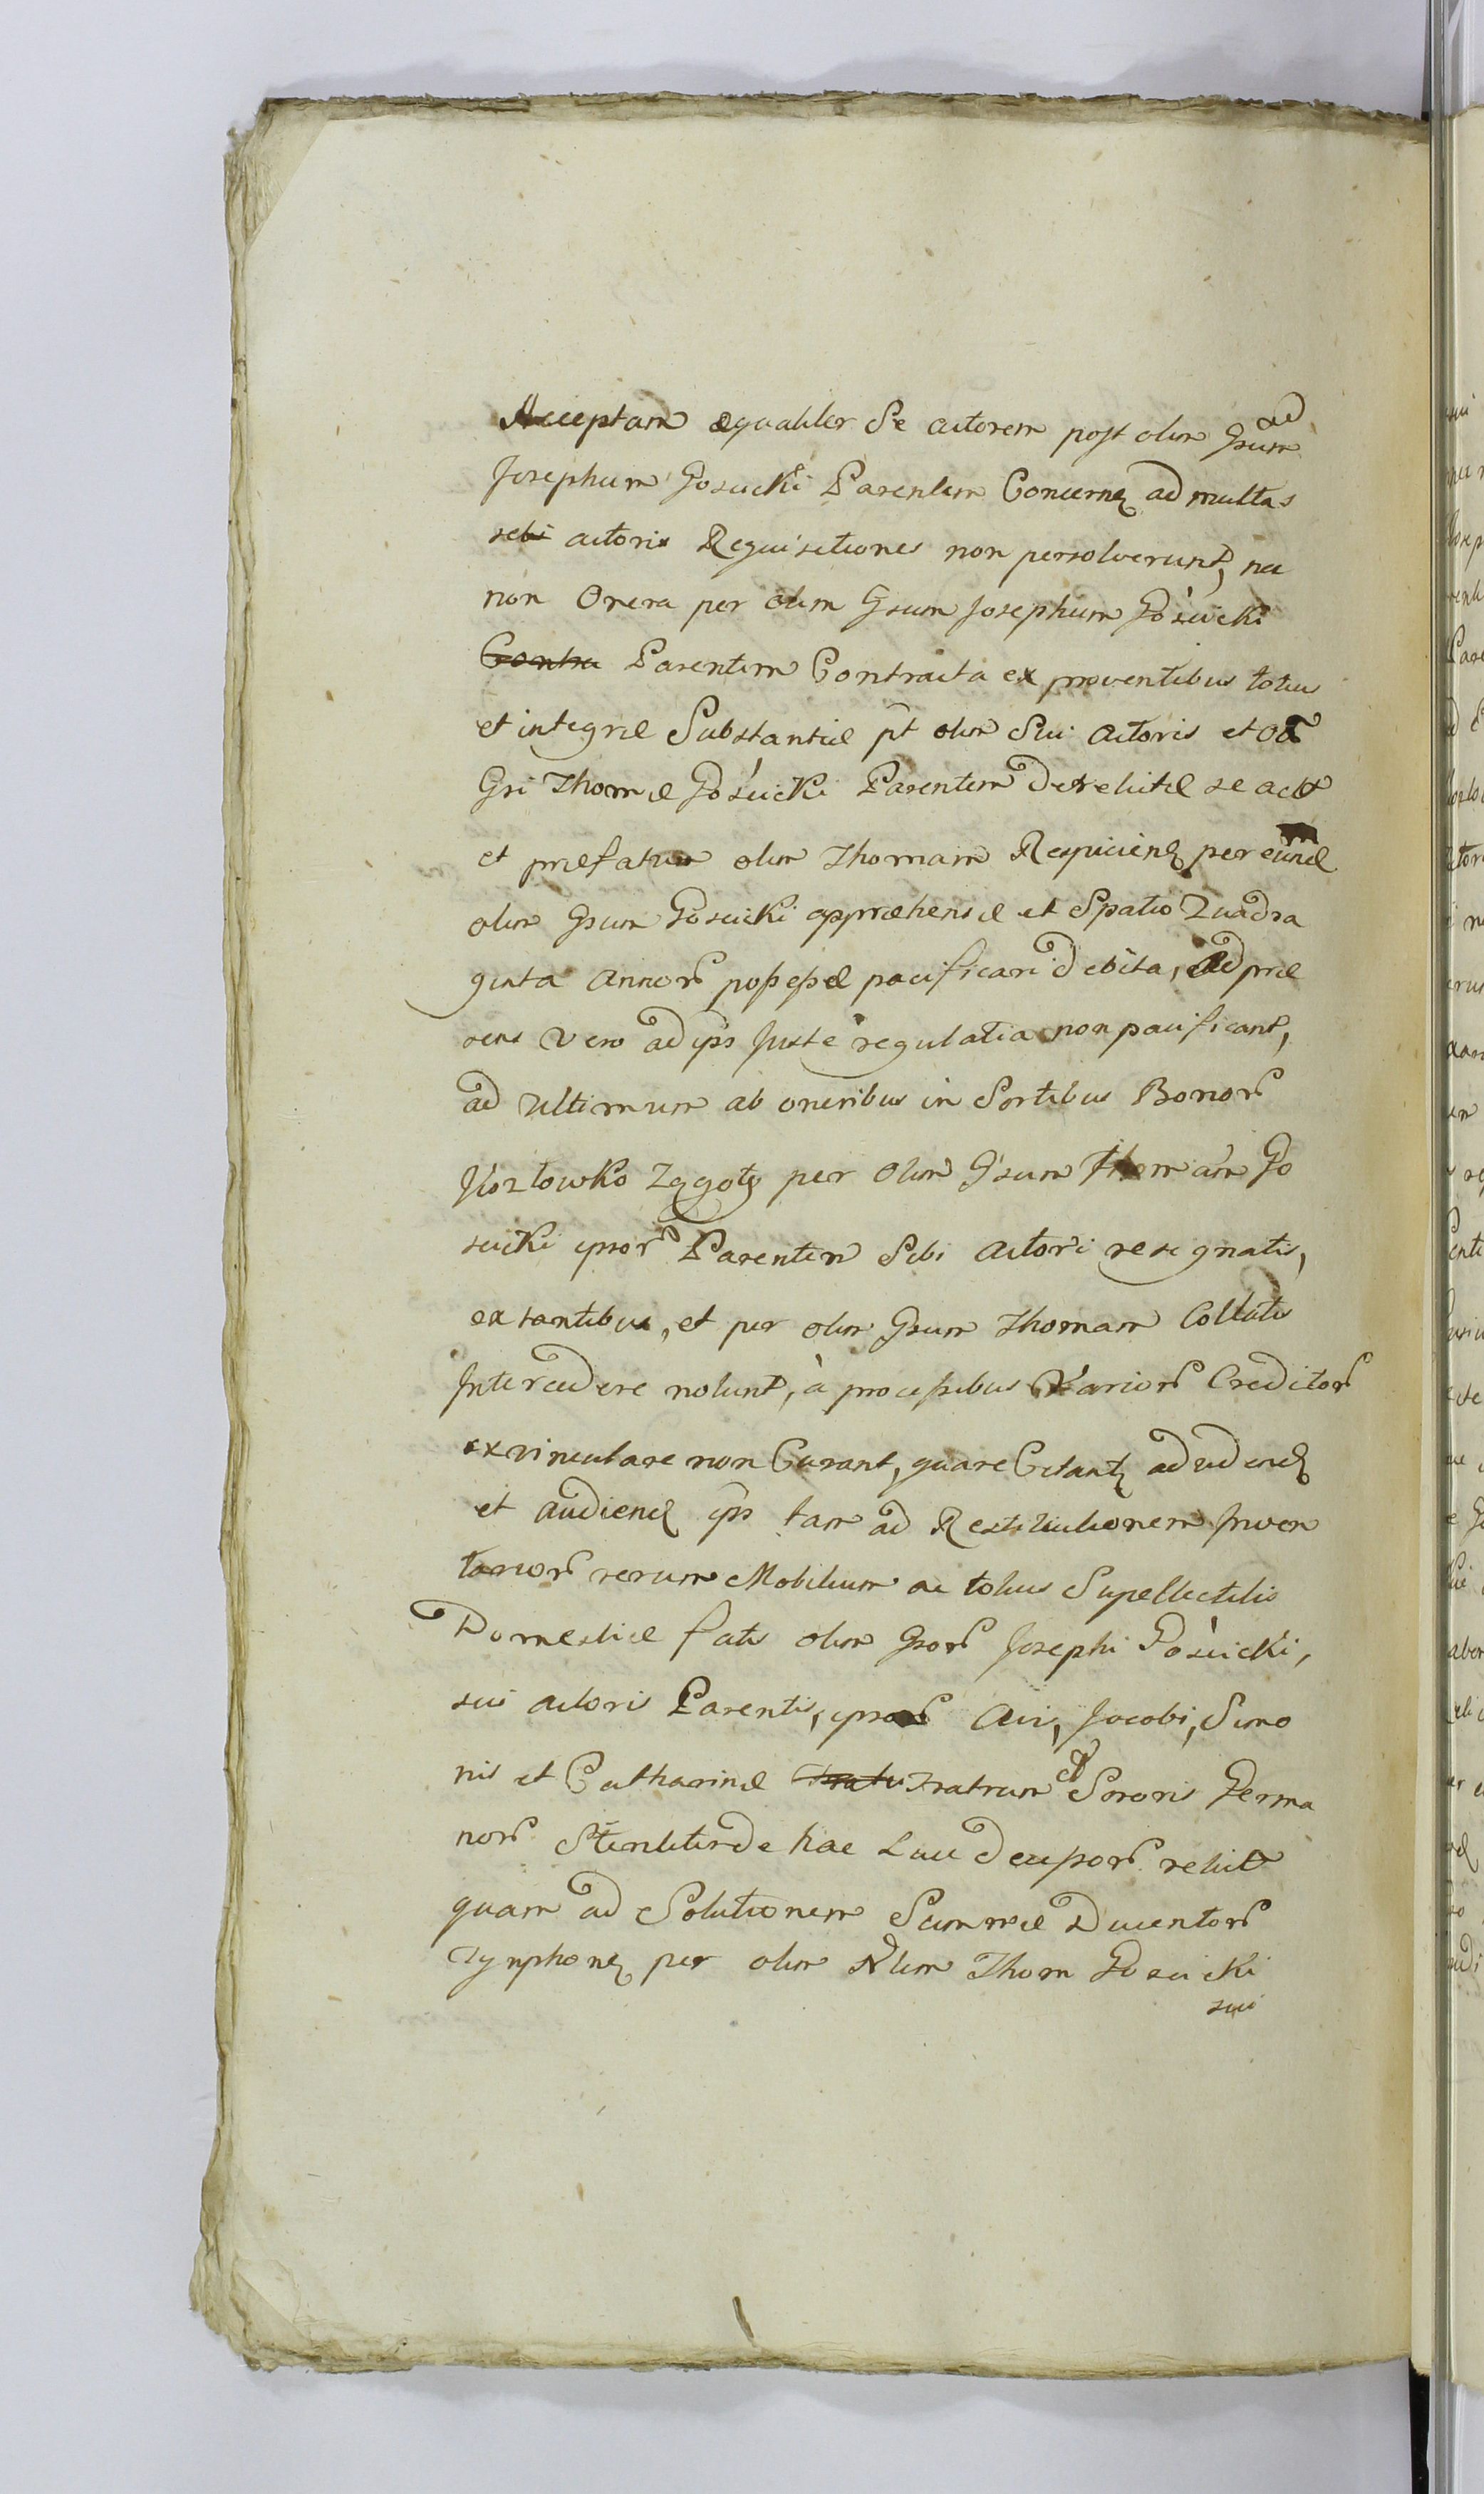 Acceptam æqualiter Se actorem post olim Gsum ad
Josephum Gosucki Parentem Concernẽ ad multas
sebi actoris Requisitiones non persolverunt, nec
non Onera per olim Gsum Josephum Gósucki
Contra Parentem Contracta ex proventibus totius
et integræ Substantiæ pt olim Sui actoris et
Gsi Thomæ Gósucki Parentem Derelictæ se act
et præfatum olim Thomam Respicienẽ per eund
olim Gsum Gosucki appræhensæ et Spatio Quadra
ginta annor possessæ pacificari debita, ad præ
sens vero ad ips Juste regulatia non pacificant,
ad ultimum ab oneribus in Sortibus Bonor
Kozłowko Zggoty per Olim Gsum Thomam Go
sucki ipsor Parentem Sibi actori resignatis,
extantibus, et per olim Gsum Thomam Collatis
Intercedere nolunt, à processibus Varior Creditor
exvinculare non Curant, quare Citantẽ ad videndẽ
et audiendẽ ips tam ad Restitutionem Inven
tarior rerum Mobilium ac totius Supellectilis
Domesticæ fatis olim Gsor Josephi Gósucki,
sui actoris Parentis, ipsor Avi, Jacobi, Simo
nis et Catharinæ Fratr Fratrum et Sororis Germa
nor Steriliter de hac Luce decessor relict
quam ad Solutionem Summæ Ducentor
Tynphonẽ per olim Nlem Thom Gosucki
sui